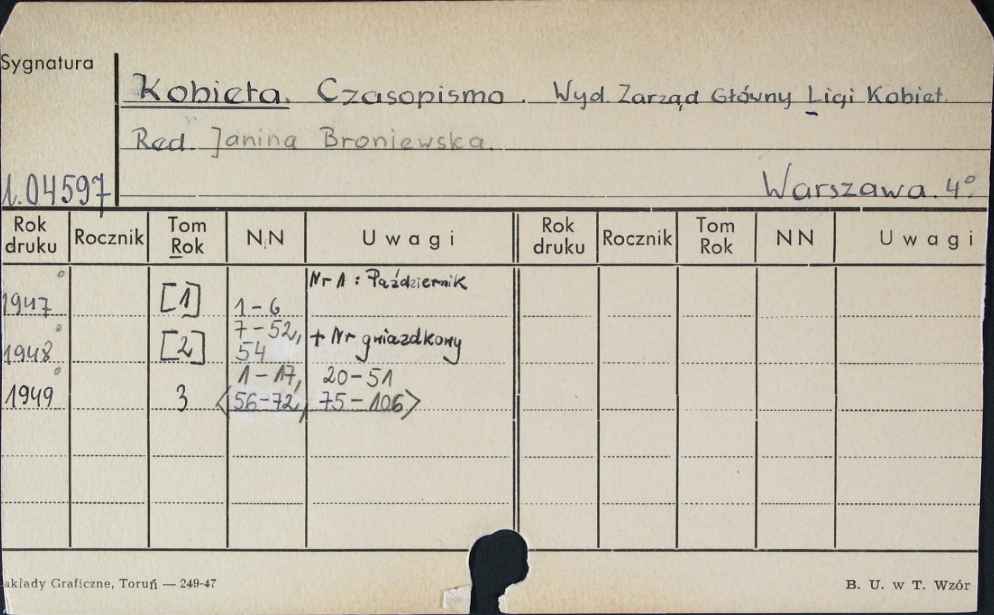 Sygnatura
Kobieta. Czasopismo. Wyd. Zarząd Główny Ligi Kobiet.
Red. Janina Broniewska.
1.04597
Warszawa. 4°.
Rok druku Rocznik Tom Rok NN Uwagi Rok druku Rocznik Tom Rok NN Uwagi
Nr 1 : Październik
1947 [1] 1-6
7-52, + Nr gwiazdkowy
1948 [2] 54
1-17, 20-51
1949 3 <56-72, 75-106>
akłady Graficzne, Toruń — 249-47
B. U. w T. Wzór